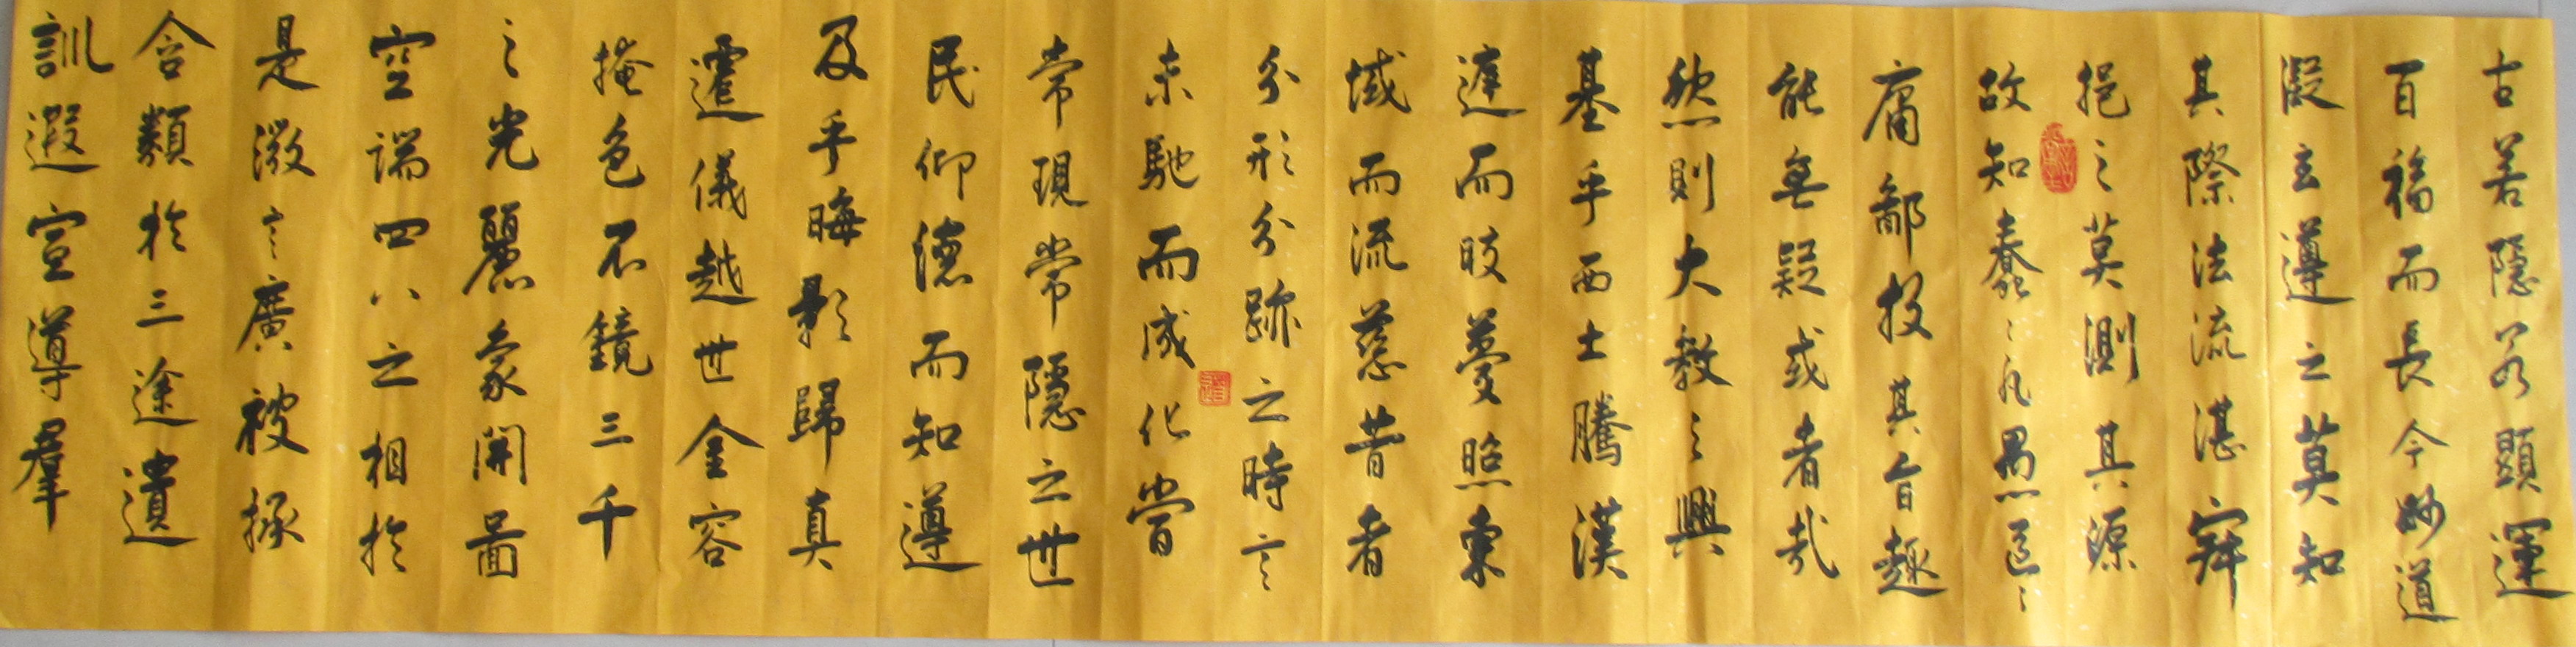 古若隱若顯運
百福而長今妙道
凝玄遵之莫知
其際法流湛寂
挹之莫測其源
故知蠢〻凡愚區〻
庸鄙投其旨趣
能無疑或者哉
然則大教之興
基乎西土騰漢
庭而皎夢照東
域而流慈昔者
分形分跡之時言
未馳而成化當
常現常隱之世
民仰德而知遵
及乎晦影歸真
遷儀越世金容
掩色不鏡三千
之光麗象開圖
空端四八之相於
是微言廣被拯
含類於三途遺
訓遐宣導羣